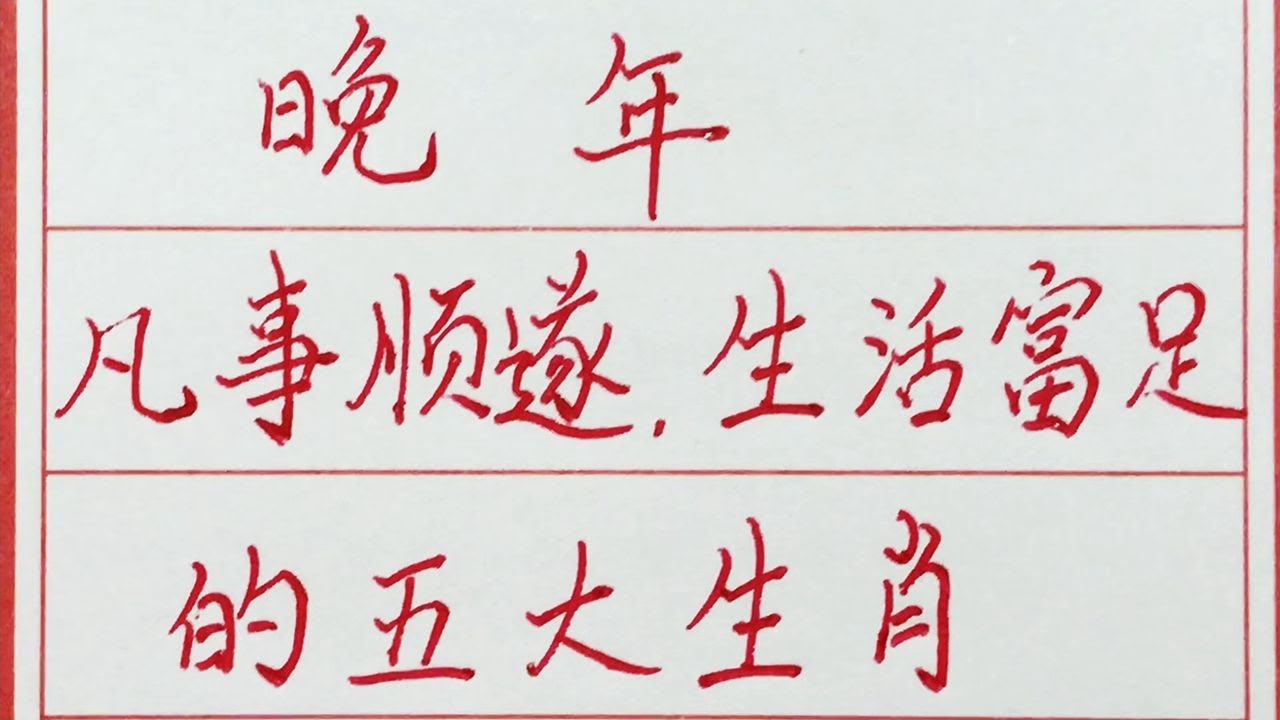 晚年
凡事顺遂.生活富足
的五大生肖